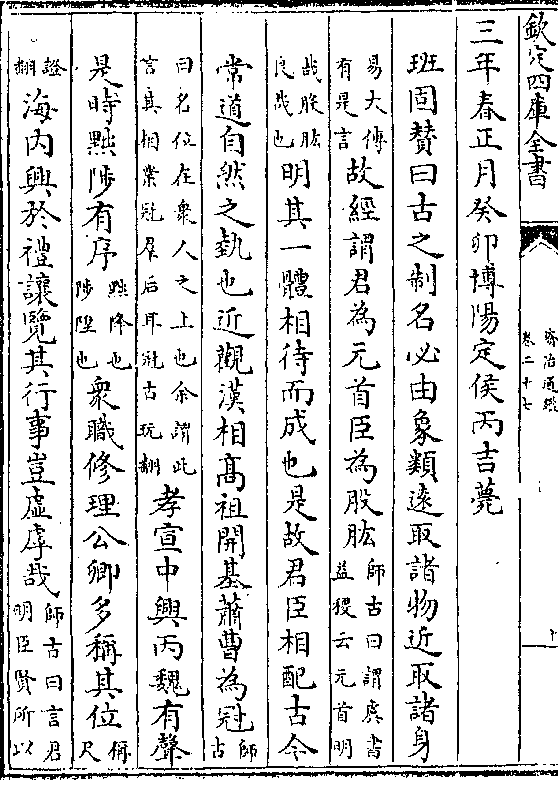 欽定四庫全書
資治通鑑
卷二十七
十
三年春正月癸卯博陽定侯丙吉薨
班固贊曰古之制名必由象類遠取諸物近取諸身
易大傳有是言故經謂君為元首臣為股肱師古曰謂虞書益稷云元首明
哉股肱良哉也明其一體相待而成也是故君臣相配古今
常道自然之埶也近觀漢相高祖開基蕭曹為冠師古
曰名位在衆人之上也余謂此言其相業冠羣后耳冠古玩翻孝宣中興丙魏有聲
是時黜陟有序黜降也陟陞也衆職修理公卿多稱其位稱尺
證翻海内興於禮讓覽其行事豈虛虖哉師古曰言君明臣賢所以